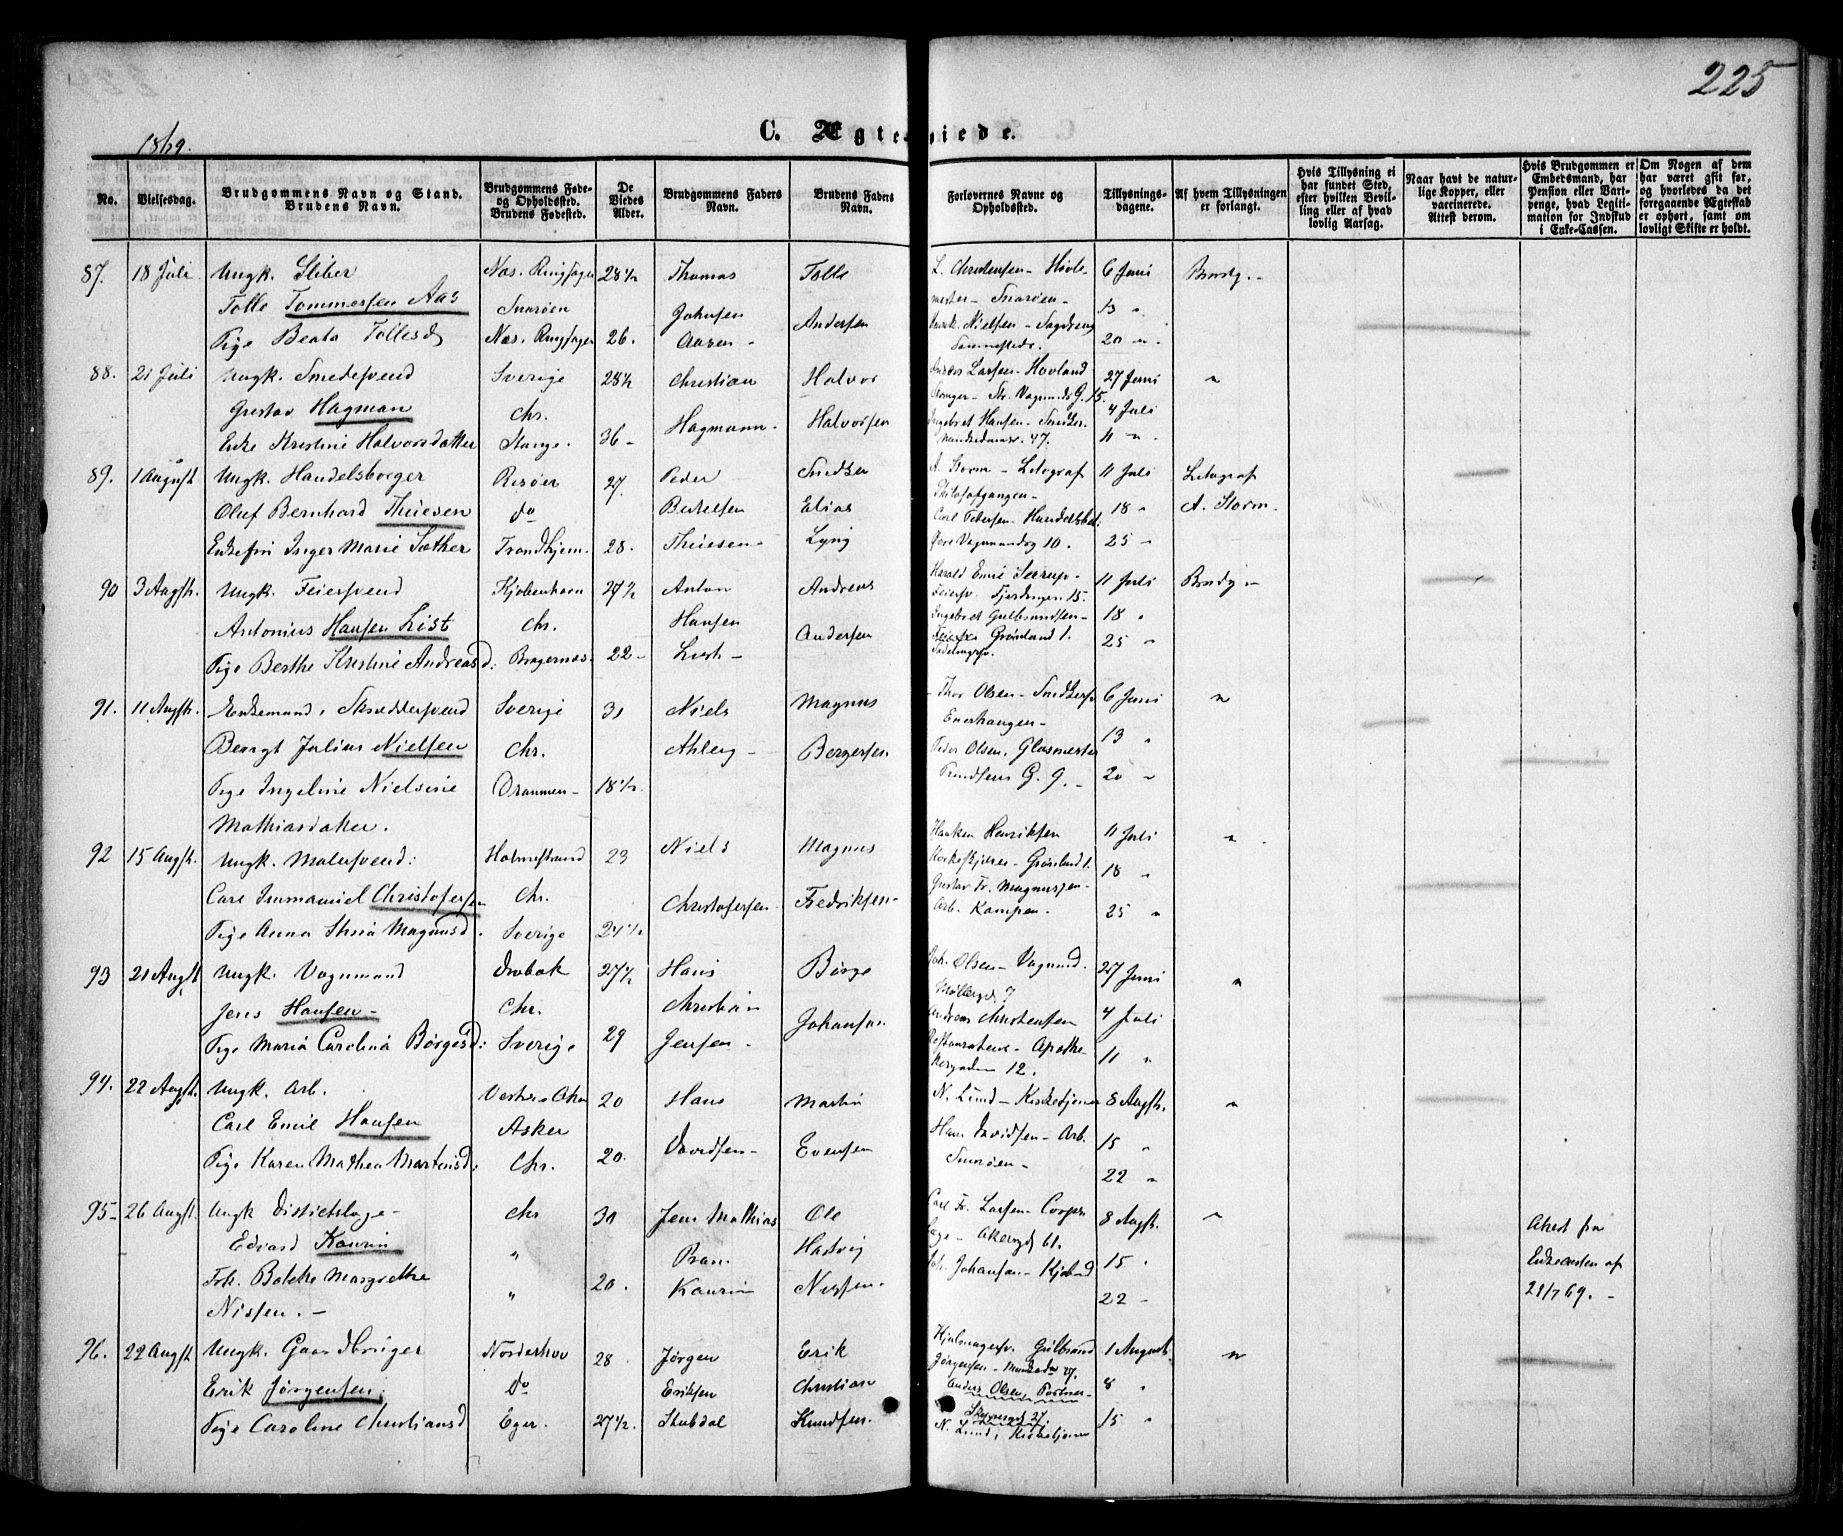 225
1869.
C. Ægteviede.
No.
Vielsesdag.
Brudgommens Navn og Stand.
Brudens Navn.
Brudgommens Føde-
og Opholdssted.
Brudens Fødested.
De
Viedes
Alder.
Brudgommens Faders
Navn.
Brudens Faders
Navn.
Forlovernes Navne og
Opholdssted.
Tillysnings-
dagene.
Af hvem Tillysningen
er forlangt.
Hvis Tillysning ei
har fundet Sted,
efter hvilken Bevil-
ling eller af hvad
lovlig Aarsag.
Naar havt de natur-
lige Kopper, eller
vaccinerede.
Attest derom.
Hvis Brudgommen er
Embedsmand, har
Pension eller Vart-
penge, hvad Legiti-
mation for Indskud
i Enke-Cassen.
Om Nogen af dem
har været gift før,
og hvorledes da det
foregaaende Ægteskab
er ophørt, samt om
lovligt Skifte er holdt.
87. 18 Juli Ungk. Sliber Næs. Ringsager 28 1/2 Thomas Tolle L. Christensen - Høvle- 6 Juni Brudg.
Tolle Tommesen Aas Snarøen Johnsen Andersen mester - Snarøen - 13 "
Pige Beata Tollesd Næs. Ringsager 26. Aasen - Nielsen - Sagdreng 20 "
88. 21 Juli Ungk. Smedesvend Sverige 28 1/2 Christian Halvor Anders Larsen - Hovland 27 Juni "
Gustav Hagman Chr. Hagmann - Halvorsen St. Vognmds G. 15. 4 Juli
Enke Kristine Halvorsdatter Stange. 36 - Ingebret Hansen - Snedker 47. 11 "
89. 1 August Ungk. Handelsborger Risøer 27. Peder Snedker A. Storm - Litograf 11 Juli Litograf
Oluf Bernhard Thiesen do Bertelsen Elias Filosofgangen - 18 " A. Storm.
Enkefru Inger Marie Sæther Trondhjem. 28. Thiesen - Lyng Carl Petersen - Handelsbet. 25 "
Øvre Vognmandsg 10.
90 3 Augst. Ungk. Feiersvend Kjøbenhavn 27 1/2 Anton Andreas Harald Emil Seerup - 11 Juli Brudg -
Antonius Hansen List Chr. Hansen Andersen Feiersv. Fjerdingen 15. 18 "
Pige Berthe Kristine Andreasd: Bragernæs. 22 - List - Ingebret Gulbrandsen - Grønland 1. 25 "
91. 11 Augst. Enkemand, Skreddersvend Sverige 31 Niels Magnus Thor Olsen - Snedkersv 6 Juni "
Bengt Julius Nielsen Chr. Ahlberg - Bergersen Enerhaugen - 13 "
Pige Ingeline Nielsine Drammen - 18 1/2. Peder Olsen, Glasmester 20 "
Mathiasdatter. Knudsens G. 9. -
92 15 Augst. Ungk. Malersvend: Holmestrand 23 Niels Magnus Haaken Henriksen 11 Juli "
Carl Immanuel Christofersen Chr. Christofersen - Fredriksen - Grønland 1. 18 "
Pige Anna Stina Magnusd. Sverige 24 1/2 Gustav Fr. Magnussen - Arb. Kampen. 25 "
93 21 Augst Ungk. Vognmand Drøbak 27 1/2 Hans Børge Joh. Olsen - Vognmd. 27 Juni "
Jens Hansen - Chr. Christian Johansen Møllergd 7 4 Juli
Pige Maria Carolina Børgesd: Sverige 29 Jensen - Andreas Christensen Restaurateur - Apothe- 11 "
kergaden 12.
94. 22 Augst. Ungk. Arb. Vestre Aker 20 Hans Martin N. Lund - Kirketjener 8 Augst. "
Carl Emil Hansen Asker Davidsen - Evensen Hans Davidsen - Arb. 15 "
Pige Karen Mathea Martinsd. Chr. 20. Snarøen - 22 "
95 - 26 Augst. Ungk Distictslæge - Chr 31 Jens Mathias Ole Carl Fr. Larsen - Corps- 8 Augst. " Attest fra
Edvard Kaurin " Pram Hartvig læge - Akersgd 61. 15 " Enkecassen af
Frk. Bolette Margrethe 20. Kaurin Nissen - Joh. Johansen - Kjøbmd 22 - 21/7 69. -
Nissen. - "
96. 22 Augst Ungk. Gaardbruger Norderhov 28 Jørgen Erik Hjulmagersv. Gulbrand 1 August "
Erik Jørgensen. Do Eriksen Christian Jørgensen - 8 "
Pige Caroline Christiansd Eger. 27 1/2 Stubdal Knudsen. Anders Olsen, 15 "
27. N. Lund, Kirketjener